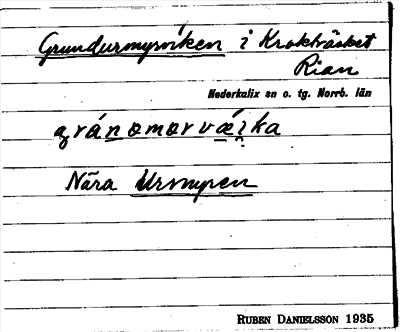 Grundurmyrviken i Krokträsket
Rian
Nederkalix sn o. tg. Norrb. län
gránomorvǽi̯ka
Nära Urmyren
RUBEN DANIELSSON 1935